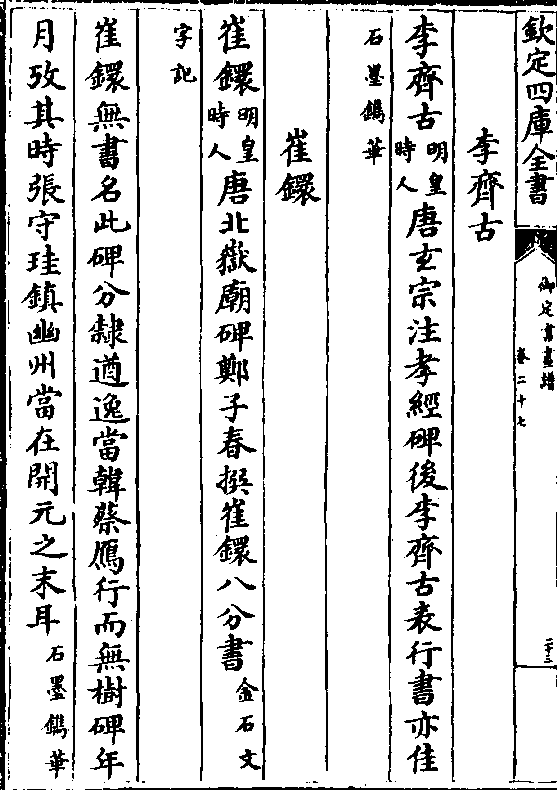 欽定四庫全書
御定書畫譜
卷二十七
二十三
李齊古
李齊古明皇時人唐玄宗注孝經碑後李齊古表行書亦佳
石墨鐫華
崔鐶
崔鐶明皇時人唐北嶽廟碑鄭子春撰崔鐶八分書金石文
字記
崔鐶無書名此碑分隸遒逸當韓蔡鴈行而無樹碑年
月攷其時張守珪鎮幽州當在開元之末耳石墨鐫華